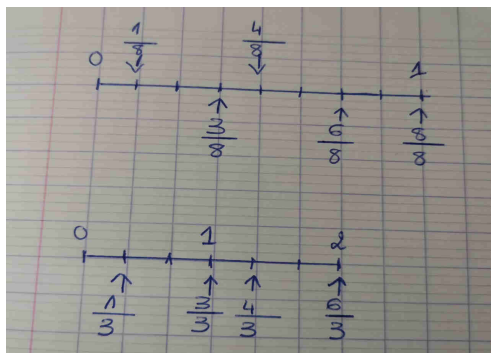 1/8 4/8
0 1
3/8 6/8 8/8
0 1 2
1/3 3/3 4/3 6/3